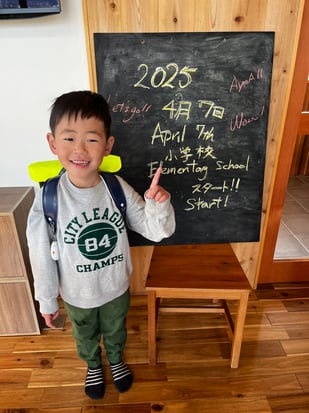 2025
Ayo A!!
Let's go!!
4月7日
Wow!
April 7th
小学校
Elementary School
スタート!!
Start!
CITY LEAGUE
84
CHAMPS